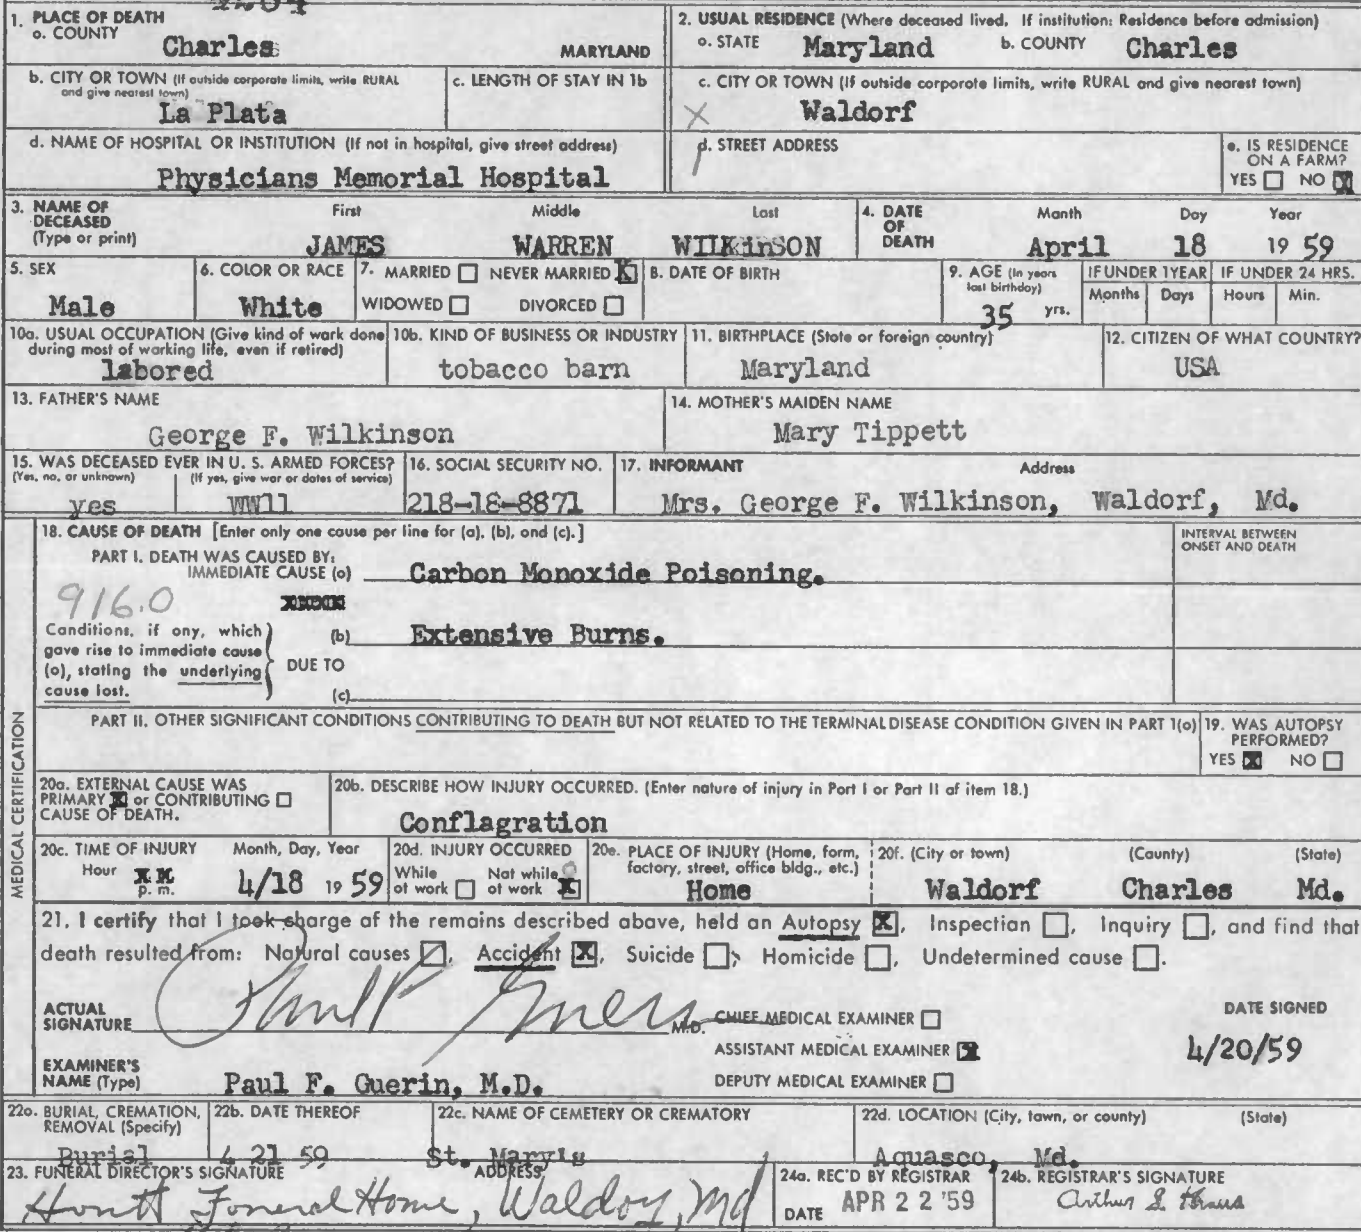 1. PLACE OF DEATH
a. COUNTY Charles MARYLAND
2. USUAL RESIDENCE (Where deceased lived. If institution: Residence before admission)
a. STATE Maryland b. COUNTY Charles
b. CITY OR TOWN (If outside corporate limits, write RURAL and give nearest town)
La Plata
c. LENGTH OF STAY IN 1b
c. CITY OR TOWN (If outside corporate limits, write RURAL and give nearest town)
Waldorf
d. NAME OF HOSPITAL OR INSTITUTION (If not in hospital, give street address)
Physicians Memorial Hospital
d. STREET ADDRESS
e. IS RESIDENCE
ON A FARM?
YES NO X
3. NAME OF DECEASED (Type or print)
First Middle Last
JAMES WARREN WILKinSON
4. DATE OF DEATH
Month Day Year
April 18 19 59
5. SEX
Male
6. COLOR OR RACE
White
7. MARRIED NEVER MARRIED X
WIDOWED DIVORCED
8. DATE OF BIRTH
9. AGE (In years last birthday)
35 yrs.
IF UNDER 1 YEAR
Months Days
IF UNDER 24 HRS.
Hours Min.
10a. USUAL OCCUPATION (Give kind of work done during most of working life, even if retired)
labored
10b. KIND OF BUSINESS OR INDUSTRY
tobacco barn
11. BIRTHPLACE (State or foreign country)
Maryland
12. CITIZEN OF WHAT COUNTRY?
USA
13. FATHER'S NAME
George F. Wilkinson
14. MOTHER'S MAIDEN NAME
Mary Tippett
15. WAS DECEASED EVER IN U. S. ARMED FORCES?
(Yes, no, or unknown) (If yes, give war or dates of service)
yes WW11
16. SOCIAL SECURITY NO.
218-18-8871
17. INFORMANT Address
Mrs. George F. Wilkinson, Waldorf, Md.
MEDICAL CERTIFICATION
18. CAUSE OF DEATH [Enter only one cause per line for (a), (b), and (c).]
INTERVAL BETWEEN
ONSET AND DEATH
PART I. DEATH WAS CAUSED BY:
IMMEDIATE CAUSE (a) Carbon Monoxide Poisoning.
916.0
Conditions, if any, which gave rise to immediate cause (a), stating the underlying cause last.
DUE TO
(b) Extensive Burns.
(c)
PART II. OTHER SIGNIFICANT CONDITIONS CONTRIBUTING TO DEATH BUT NOT RELATED TO THE TERMINAL DISEASE CONDITION GIVEN IN PART 1(a)
19. WAS AUTOPSY
PERFORMED?
YES X NO
20a. EXTERNAL CAUSE WAS
PRIMARY X or CONTRIBUTING
CAUSE OF DEATH.
20b. DESCRIBE HOW INJURY OCCURRED. (Enter nature of injury in Part I or Part II of item 18.)
Conflagration
20c. TIME OF INJURY Month, Day, Year
Hour p. m. 4/18 19 59
20d. INJURY OCCURRED
While at work Not while at work X
20e. PLACE OF INJURY (Home, farm, factory, street, office bldg., etc.)
Home
20f. (City or town) (County) (State)
Waldorf Charles Md.
21. I certify that I took charge of the remains described above, held an Autopsy X, Inspection, Inquiry, and find that
death resulted from: Natural causes, Accident X, Suicide; Homicide, Undetermined cause.
ACTUAL
SIGNATURE Paul F Guerin M.D.
CHIEF MEDICAL EXAMINER
ASSISTANT MEDICAL EXAMINER X
DEPUTY MEDICAL EXAMINER
DATE SIGNED
4/20/59
EXAMINER'S
NAME (Type) Paul F. Guerin, M.D.
22a. BURIAL, CREMATION, REMOVAL (Specify)
Burial
22b. DATE THEREOF
4 21 59
22c. NAME OF CEMETERY OR CREMATORY
St. Mary's
22d. LOCATION (City, town, or county) (State)
Aquasco, Md.
23. FUNERAL DIRECTOR'S SIGNATURE ADDRESS
Huntt Funeral Home, Waldorf, Md
24a. REC'D BY REGISTRAR
DATE APR 22 '59
24b. REGISTRAR'S SIGNATURE